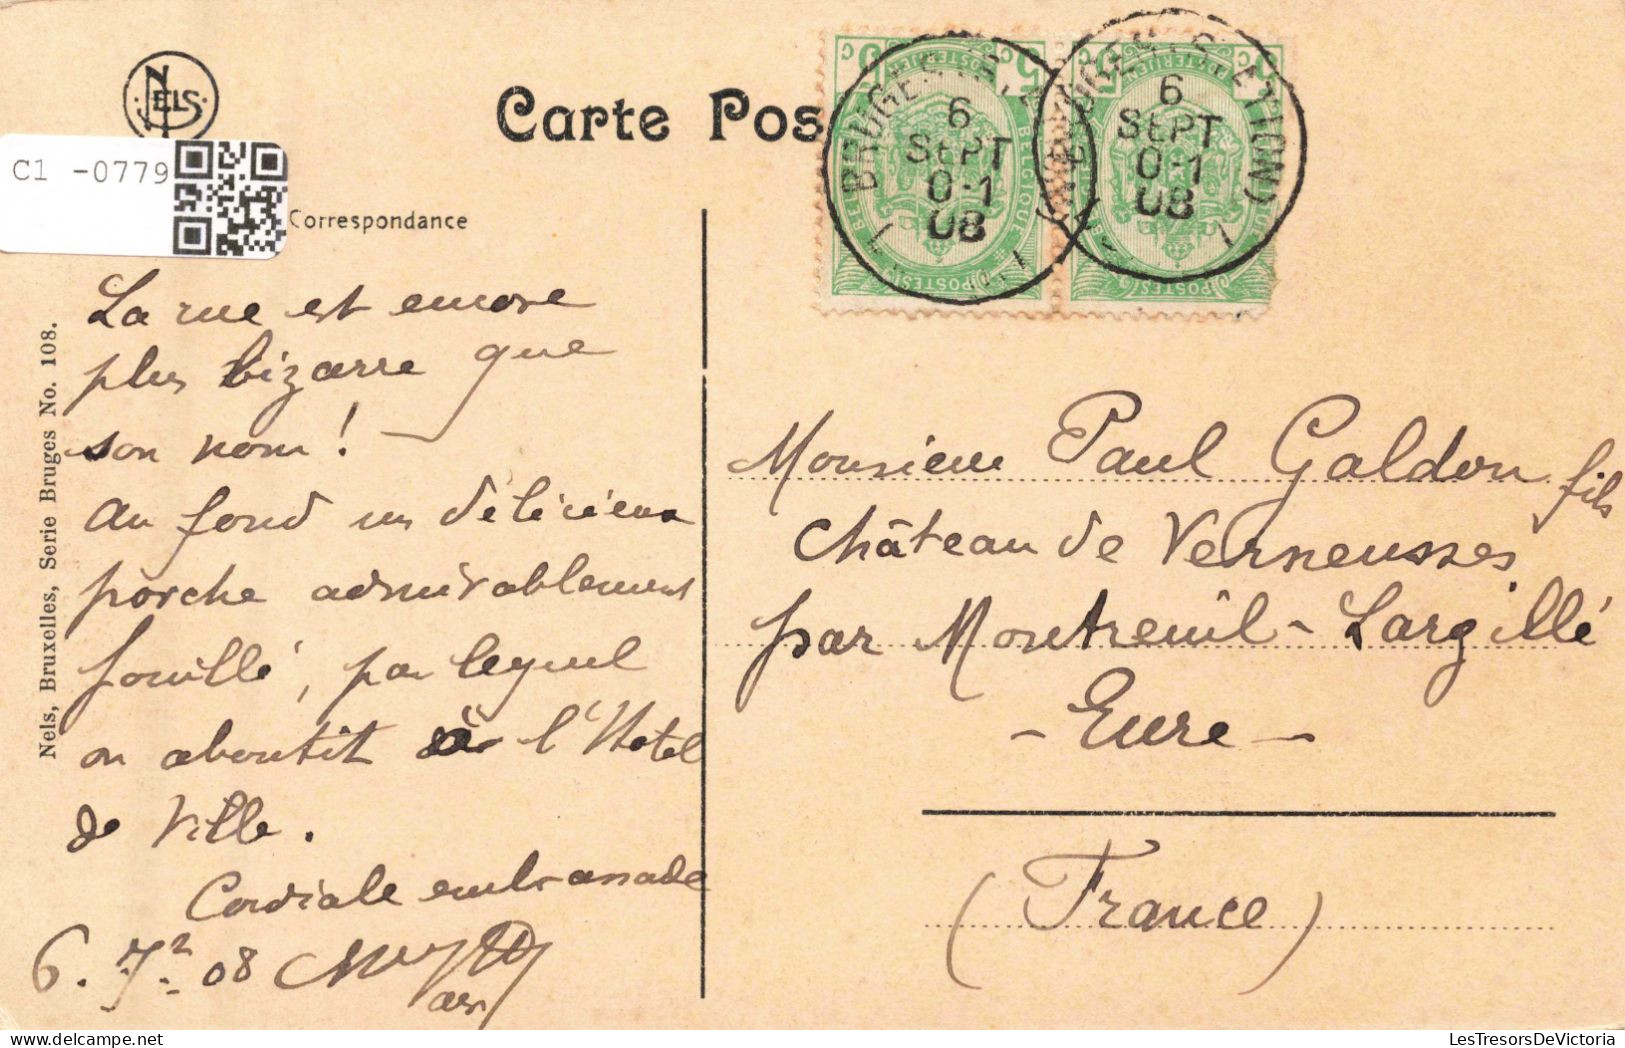 NELS
Carte Pos
C1 -0779
Correspondance
BRUGES
6
SEPT
0-1
08
BRUGES (STATION)
6
SEPT
0-1
08
5 C
POSTERIJEN
BELGIQUE
POSTES
5 C
POSTERIJEN
POSTES
Nels, Bruxelles, Serie Bruges No. 108.
La rue est encore
plus bizarre que
son nom!
Au fond un délicieux
porche admirablement
fouillé, par lequel
on aboutit à l'Hotel
de Ville.
Cordiale embrassade
6. 7.² 08
Monsieur Paul Galdon fils
Château de Verneusses
par Montreuil-Largillé
- Eure -
(France)
LesTresorsDeVictoria